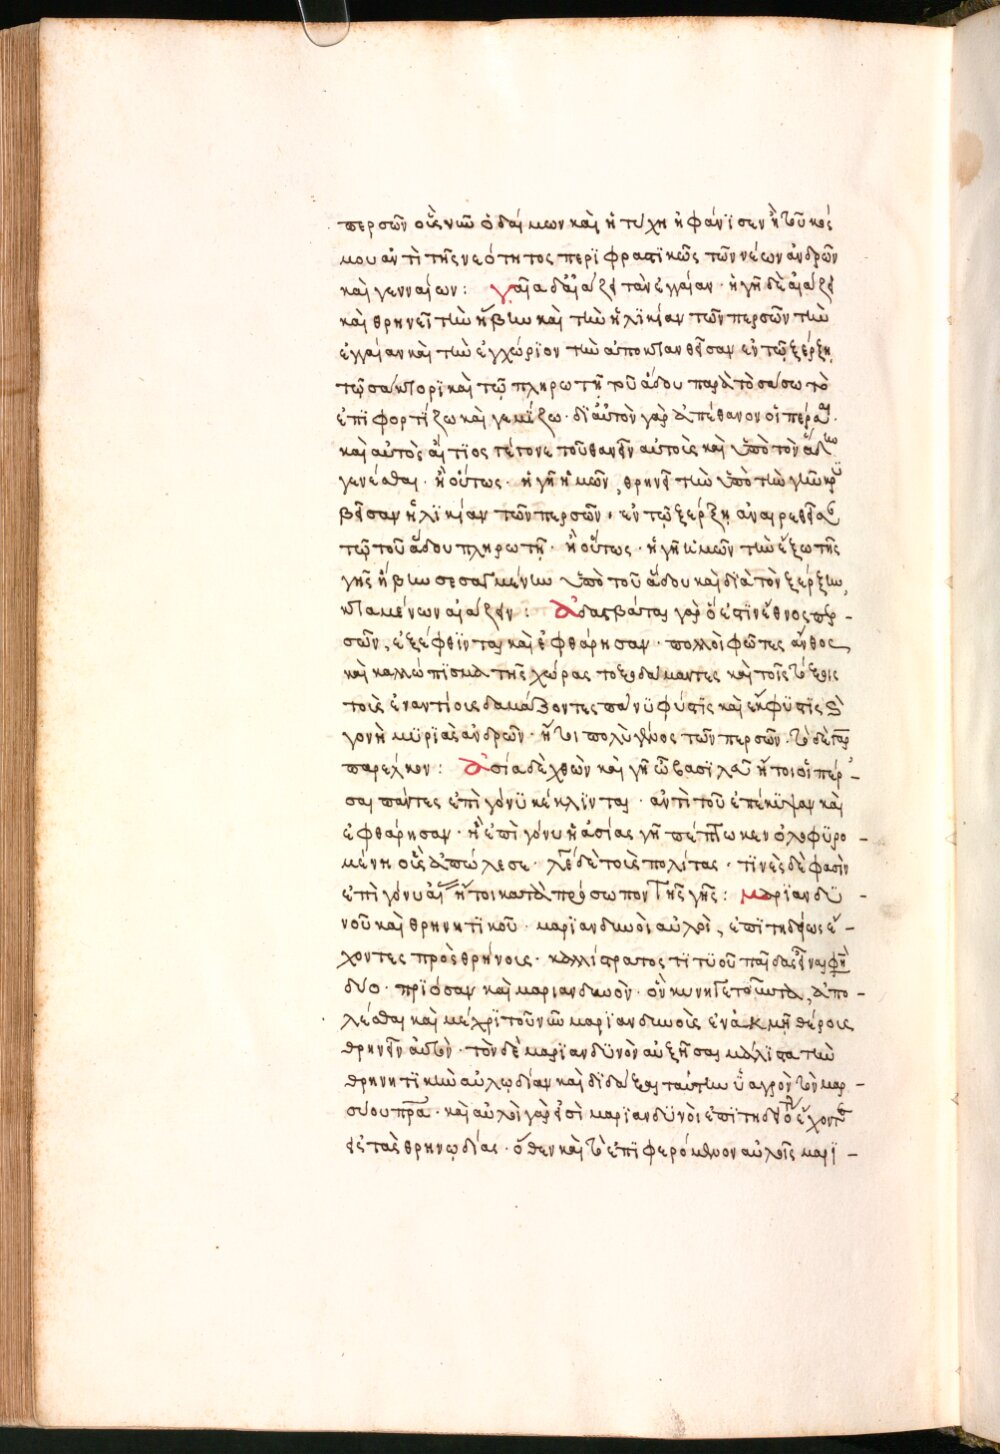 περσῶν οἷς νῦν ὁ δαίμων καὶ ἡ τύχη ἠφάνϊσεν ἢ τοῦ κόσ
μου ἀντὶ τῆς νεότητος περϊφραστϊκῶς τῶν νέων ἀνδρῶν
καὶ γενναίων : γαῖα δ' αἰάζει τὰν ἐγγαίαν · ἡ γῆ δὲ αἰάζει
καὶ θρηνεῖ τὴν ἥβην καὶ τὴν ἡλϊκίαν τῶν περσῶν τὴν
ἐγγαίαν καὶ τὴν ἐγχώριον τὴν ἀποκτανθεῖσαν ἐν τῷ ξέρξῃ
τῷ σάκτορϊ καὶ τῷ πληρωτῇ τοῦ ἅδου παρὰ τὸ σάσσω τὸ
ἐπϊφορτίζω καὶ γεμίζω · δϊ' αὐτὸν γὰρ ἀπέθανον οἱ πέρσαι ·
καὶ αὐτὸς αἴτϊος γέγονε τοῦ θανεῖν αὐτοὺς καὶ ὑπὸ τὸν ἅδην
γενέσθαι · ἢ οὕτως · ἡ γῆ ἡμῶν, θρηνεῖ τὴν ὑπὸ τὴν γῆν κρυ
βεῖσαν ἡλϊκίαν τῶν περσῶν · ἐν τῷ ξέρξῃ ἀναιρεθεῖσαν
τῷ τοῦ ἅδου πληρωτῇ · ἢ οὕτως · ἡ γῆ ἡμῶν τὴν ἔξω τῆς
γῆς ἥβην σεσαγμένην ὑπὸ τοῦ ἅδου καὶ δϊὰ τὸν ξέρξην,
κταμένων αἰάζειν : ἀδαςβάται γὰρ ὅ ἐστϊν ἔθνος περ -
σῶν, ἐξέφθϊνται καὶ ἐφθάρησαν · πολλοὶ φῶτες ἄνθος
καὶ καλλώπϊσμα τῆς χώρας τοξοδάμαντες καὶ τοῖς τόξοις
τοὺς ἐναντίους δαμάζοντες πάνϋ φύστϊς καὶ ἔκφϋσϊς
γονὴ μϋρϊὰς ἀνδρῶν · ἤτοι πολὺ πλῆθος τῶν περσῶν · τὸ δὲ γὰρ
παρέλκον : ἀσία δὲ χθὼν καὶ γῆ ὦ βασϊλεῦ ἤτοι οἱ πέρ -
σαι πάντες ἐπὶ γόνϋ κέκλϊνται · ἀντὶ τοῦ ἐπέκϋψαν καὶ
ἐφθάρησαν · ἢ ἐπὶ γόνυ ἡ ἀσίας γῆ πέπτωκεν ὀλοφϋρο -
μένη οἷς ἀπώλεσε · λέγει δὲ τοὺς πολίτας · τϊνὲς δὲ φασὶν
ἐπὶ γόνυ αἰ ἤτοι κατὰ πρόσωπον τῆς γῆς : μαρϊανδϋ -
νοῦ καὶ θρηνητϊκοῦ · μαρϊανδυνοὶ αὐλοὶ, ἐπϊτηδείως ἔ -
χοντες πρὸς θρήνους · καλλίστρατος τϊτϋοῦ παῖδας εἶναι φησὶ
δύο · πρϊόσαν καὶ μαριανδυνόν · ὃν κυνηγετοῦντα, ἀπο -
λέσθαι καὶ μέχρϊ τοῦ νῦν μαρϊανδυνοὺς ἐν ἀκμῇ θέρους
θρηνεῖν αὐτόν · τὸν δὲ μαρϊανδϋνὸν αὐξῆσαι μάλϊστα τὴν
θρηνητϊκὴν αὐλῳδίαν καὶ δϊδάξαι ταύτην ὕαγνϊν τὸν μαρ -
σύου πρα · καὶ αὐλοὶ γὰρ εἰσὶ μαρϊανδϋνοὶ ἐπϊτηδειότητα ἔχοντες
εἰς τὰς θρηνῳδίας · ὅθεν καὶ τὸ ἐπϊφερόμενον αὐλοῖς μαρϊ -